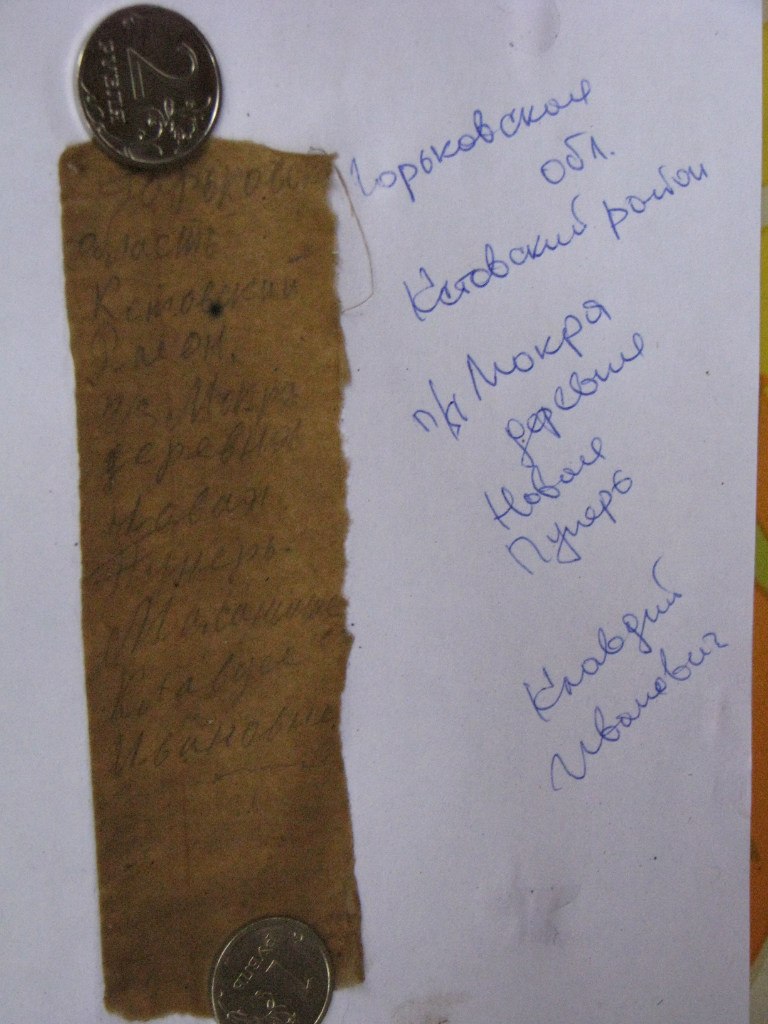 2
РУБЛЯ
Горьков
область
Кстовский
район.
п/о Мокра
деревня
новая
Пунерь.
Клавдий
Иванович
Горьковская
обл.
Кстовский район
п/о Мокра
деревня
Новая
Пунерь
Клавдий
Иванович
РУБЛЬ